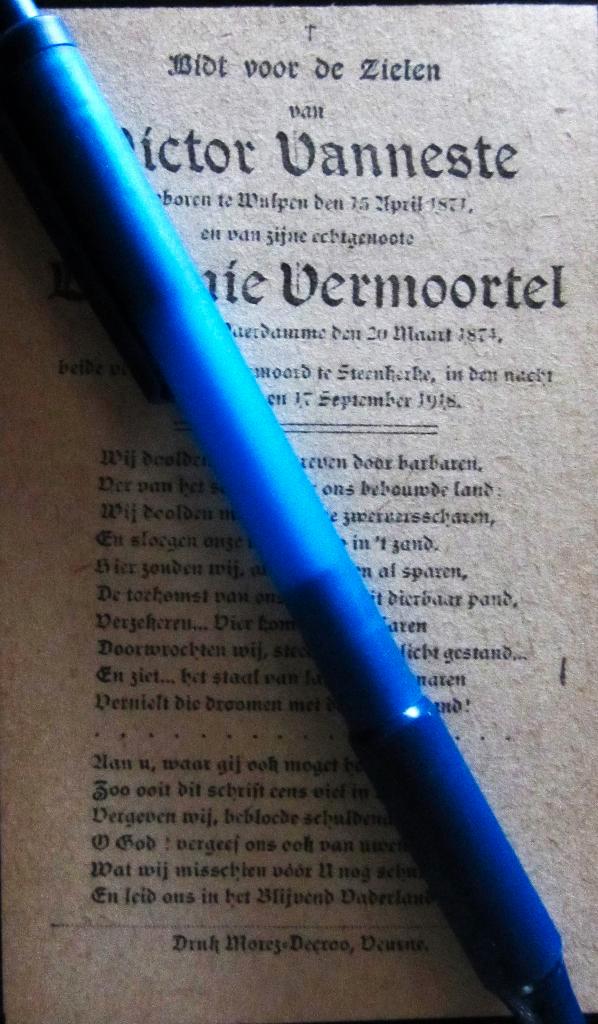 Bidt voor de Zielen
van
Victor Vanneste
boren te Wulpen den 15 April 1871,
en van zijne echtgenoote
nie Vermoortel
aerdamme den 20 Maart 1874,
beide ve moord te Steenkerke, in den nacht
en 17 September 1918.
Wij doolden reven door barbaren,
Ver van het ons bebouwde land:
Wij doolden m e zwerversscharen,
En sloegen onze in 't zand.
Hier zouden wij, n af sparen,
De toekomst van ons it dierbaar pand,
Verzekeren... Vier aren
Doorwrochten wij, licht gestand...
En ziet... het staal van naren
Vernielt die droomen met nd!
Aan u, waar gij ook moget
Zoo ooit dit schrift eens viel in
Vergeven wij, bebloede
O God! vergeef ons ook van
Wat wij misschien vóór U nog
En leid ons in het Blijvend Vaderland
Druk Morez-Decroo, Veurne.